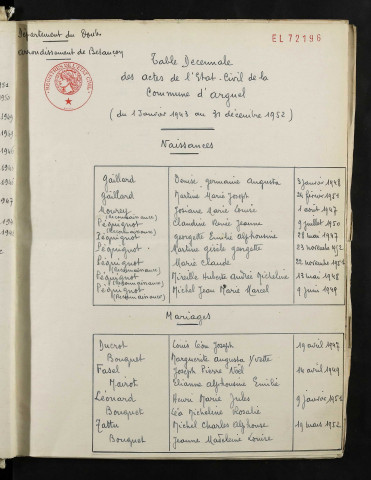 Département du Doubs
EL 72196
arrondissement de Besançon
Table Decennale
des actes de l'Etat-Civil de la
Commune d'Arguel
(du 1 Janvier 1943 au 31 décembre 1952)
Naissances
Gaillard Denise germaine Augusta 3 janvier 1948
Gaillard Martine Marie Joseph 24 février 1951
Josiane Marie Louise 1 août 1947
(Reconnaissance)
Péquignot Claudine Renée Jeanne 9 juillet 1950
(Reconnaissance)
Péquignot georgette Emilie Alphonsine 28 mai 1947
Péquignot Martine gisèle georgette 23 novembre 1952
Péquignot Marie Claude 22 novembre 1952
(Reconnaissance)
Péquignot Mireille Huberte Andrée Micheline 13 mai 1948
(Reconnaissance)
Péquignot Michel Jean Marie Marcel 9 juin 1949
(Reconnaissance)
Mariages
Ducrot Louis Léon Joseph 19 avril 1947
Bouquet Marguerite Augusta Yvette
Fasel Joseph Pierre Noël 14 avril 1949
Marot Elianne Alphonsine Emilie
Léonard Henri Marie Jules 9 janvier 1952
Bouquet Léa Micheline Rosalie
Tattu Michel Charles Alphonse 19 mars 1952
Bouquet Jeanne Madeleine Louise